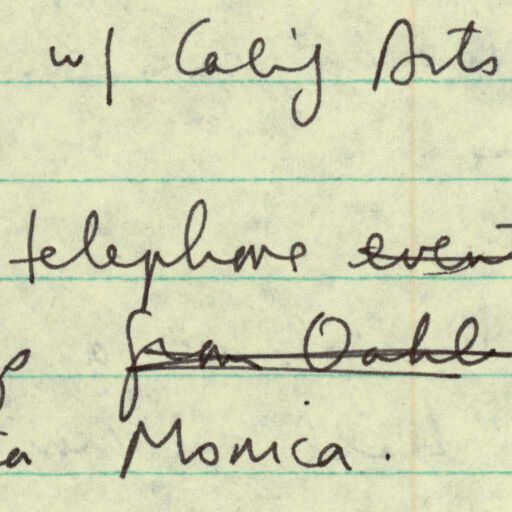 w/ Calif Arts
telephone event
from Oakl
Monica.